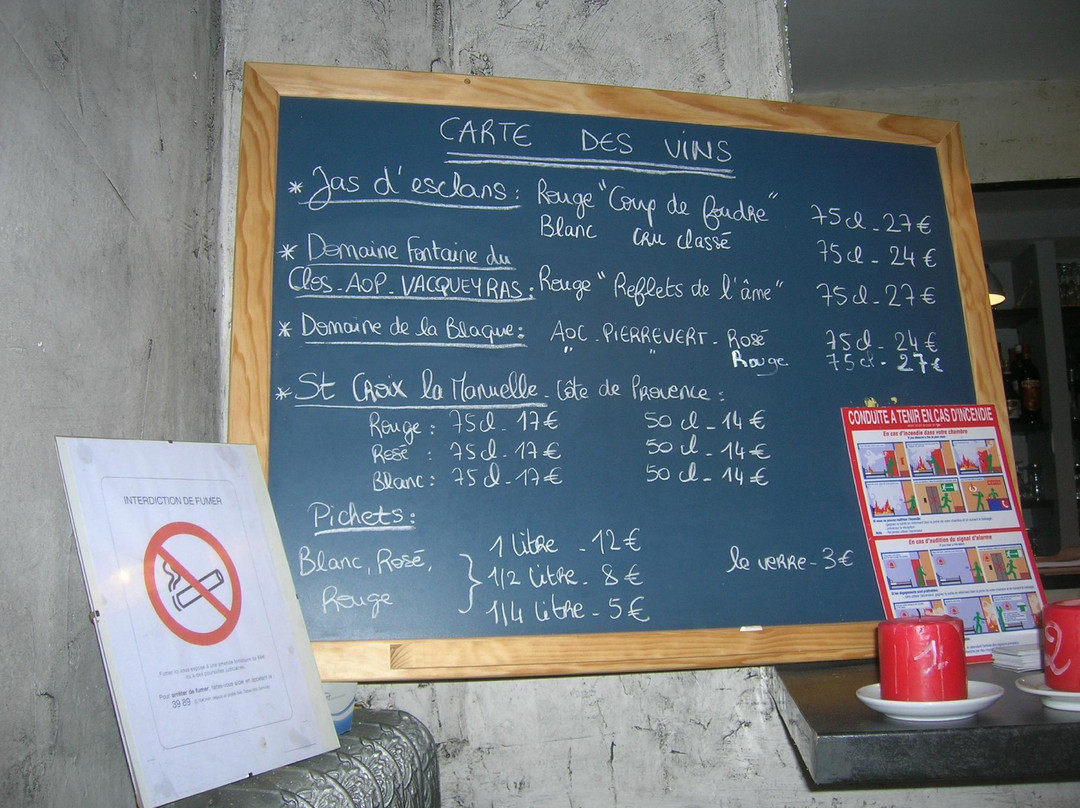 CARTE DES VINS
* Jas d'esclans : Rouge "Coup de foudre" 75 cl - 27 €
Blanc CRU classé 75 cl - 24 €
* Domaine Fontaine du
Clos - AOP - VACQUEYRAS : Rouge "Reflets de l'âme" 75 cl - 27 €
* Domaine de la Blaque : AOC - PIERREVERT - Rosé 75 cl - 24 €
" " Rouge 75 cl - 27 €
* St CROIX la Manuelle - Côte de Provence :
Rouge : 75 cl - 17 € 50 cl - 14 €
Rosé : 75 cl - 17 € 50 cl - 14 €
Blanc : 75 cl - 17 € 50 cl - 14 €
Pichets :
Blanc, Rosé,
Rouge
1 litre - 12 €
1/2 litre - 8 €
1/4 litre - 5 €
le verre - 3 €
INTERDICTION DE FUMER
Fumer ici vous expose à une amende forfaitaire de 68€
ou à des poursuites judiciaires.
Pour arrêter de fumer, faites-vous aider en appelant le
39 89
CONDUITE A TENIR EN CAS D'INCENDIE
En cas d'incendie dans votre chambre
En cas d'audition du signal d'alarme
1
2